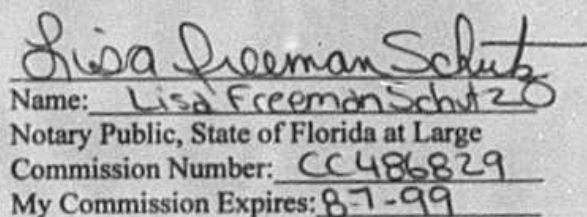 Lisa Freeman Schutz
Name: Lisa Freeman Schutz
Notary Public, State of Florida at Large
Commission Number: CC486829
My Commission Expires: 8-7-99